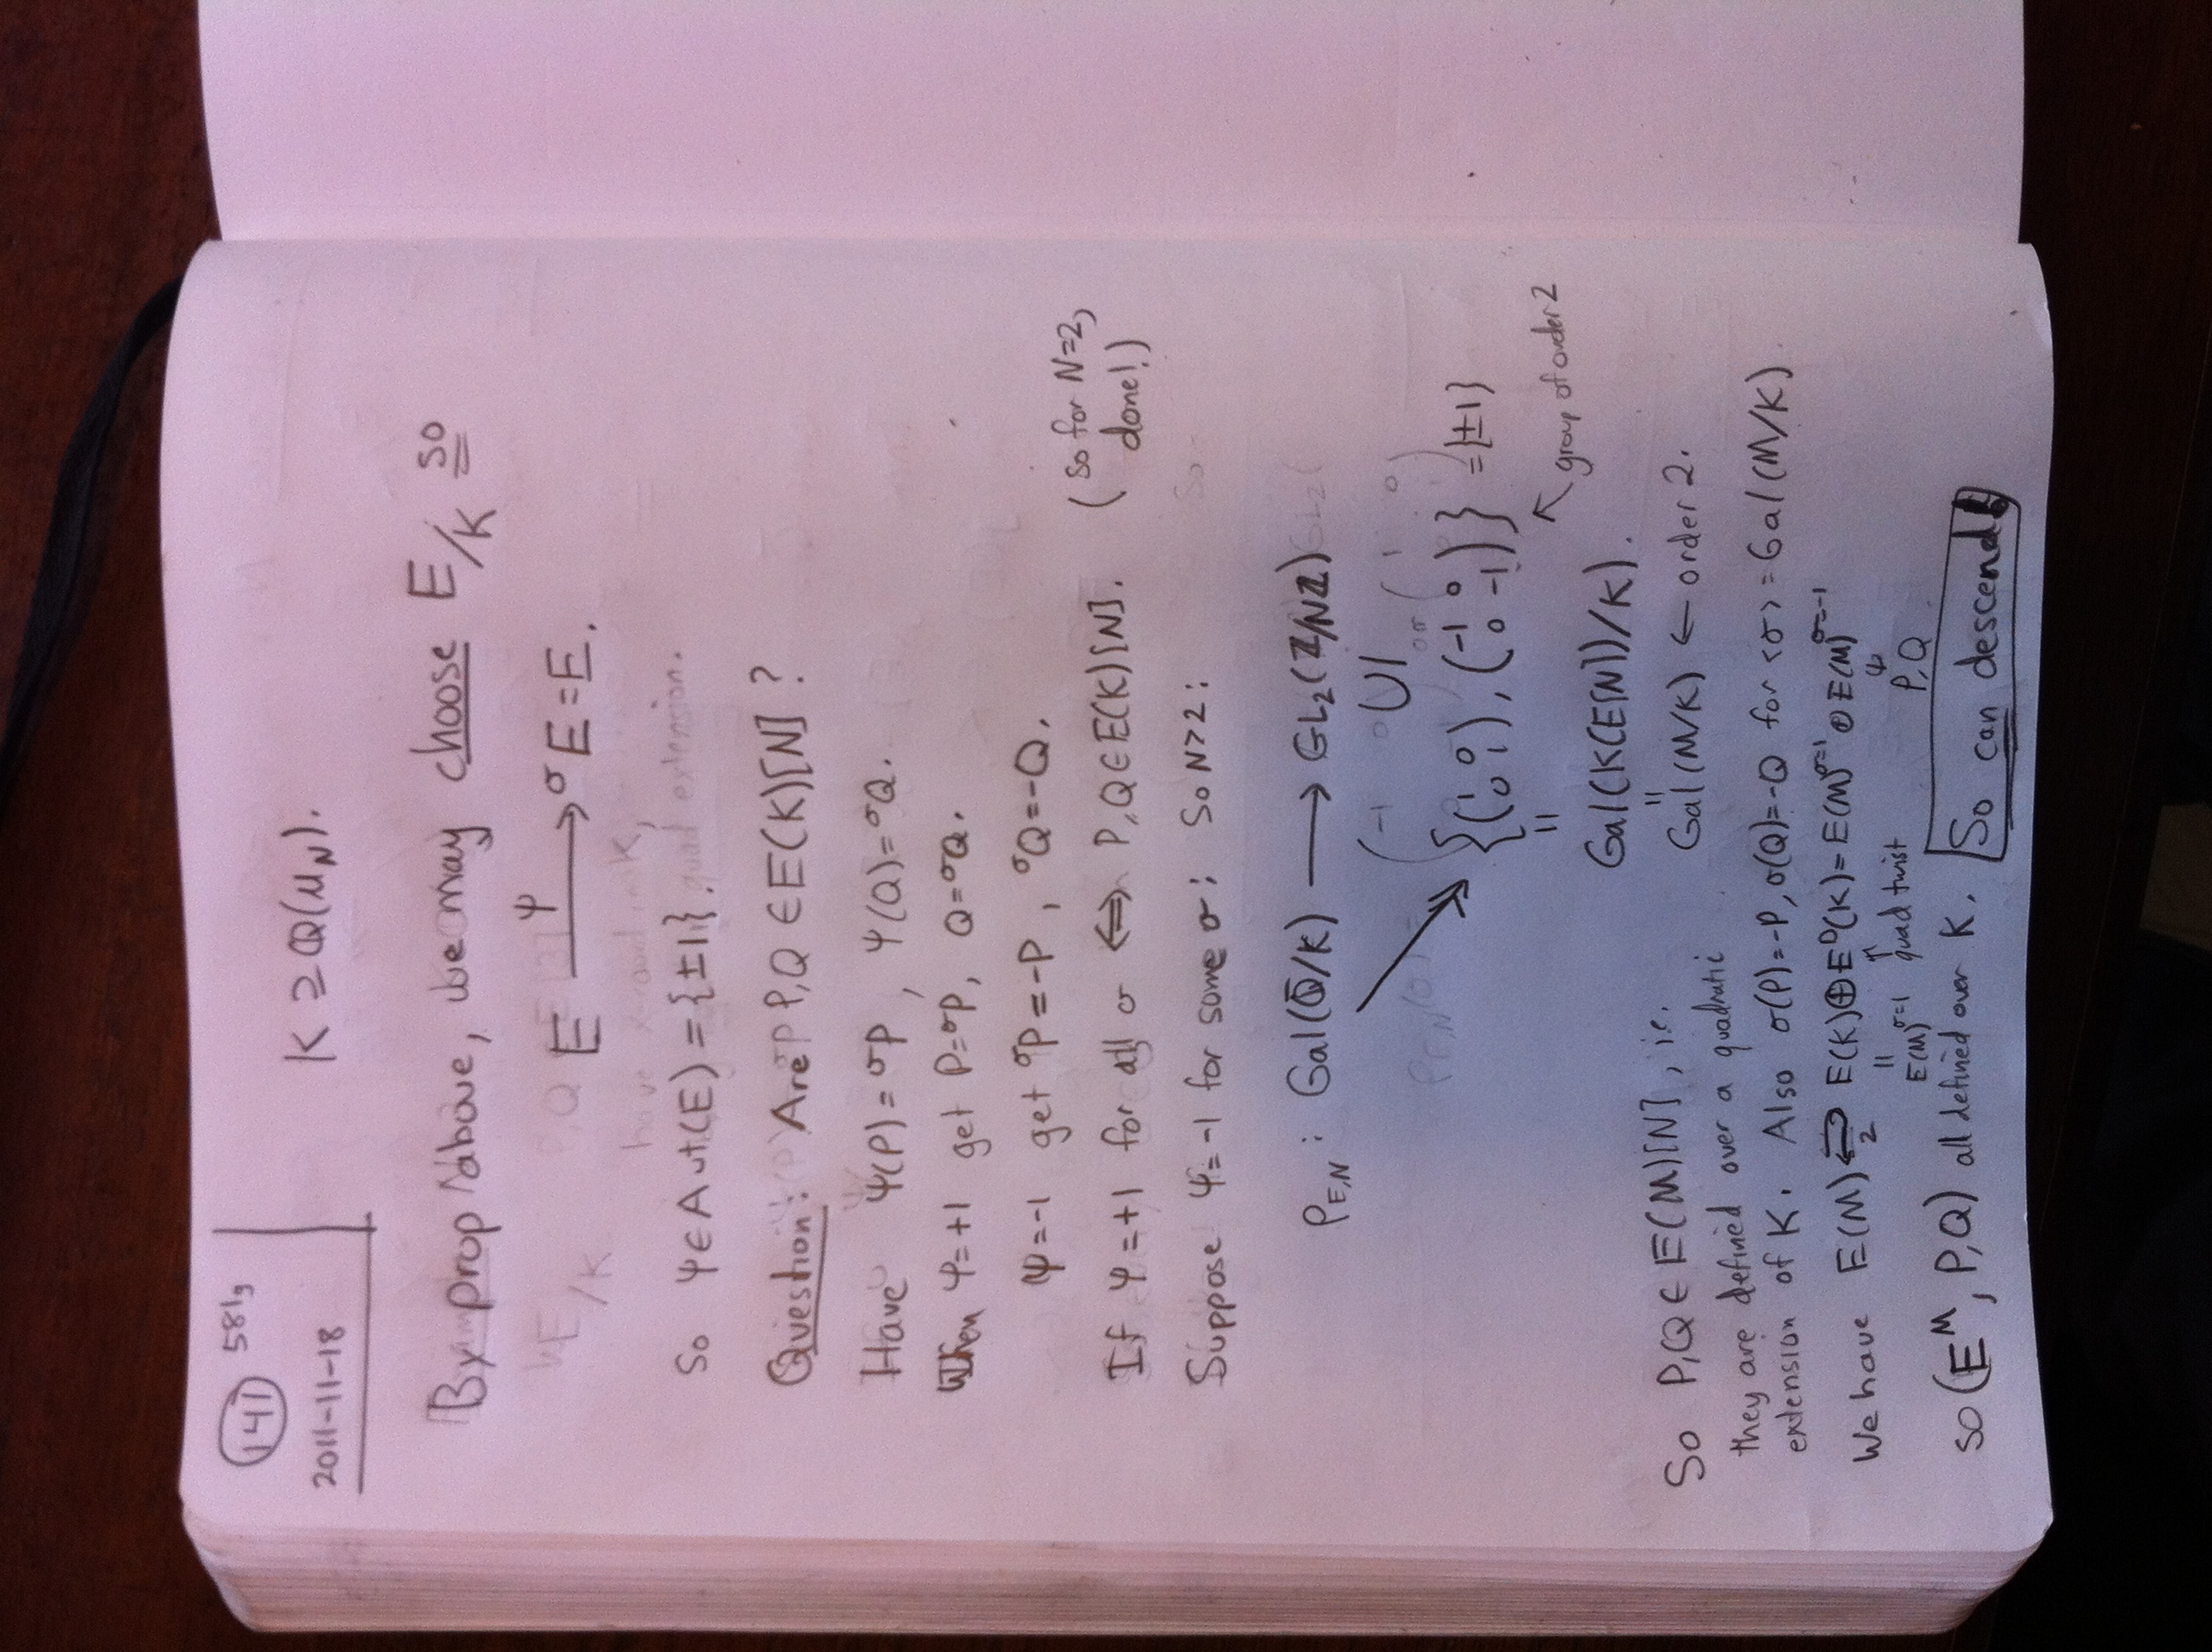 141 581g
2011-11-18
K ⊇ Q(μ_N).
By prop above, we may choose E/K so
E —ψ→ ^σE = E.
So ψ ∈ Aut(E) = {±1}.
Question: Are P,Q ∈ E(K)[N] ?
Have ψ(P) = ^σP, ψ(Q) = ^σQ.
When ψ=+1 get P=^σP, Q=^σQ.
ψ=-1 get ^σP=-P, ^σQ=-Q.
If ψ=+1 for all σ ⟺ P,Q ∈ E(K)[N]. (so for N=2, done!)
Suppose ψ=-1 for some σ; So N>2:
ρ_{E,N} : Gal(Q̄/K) ⟶ GL₂(Z/NZ)
∪|
{(1 0; 0 1), (-1 0; 0 -1)} = {±1}
group of order 2
||
Gal(K(E[N])/K).
||
Gal(M/K) ← order 2.
So P,Q ∈ E(M)[N], i.e.
they are defined over a quadratic
extension of K. Also σ(P)=-P, σ(Q)=-Q for <σ> = Gal(M/K).
We have E(M) ⊋₂ E(K)⊕E^D(K) = E(M)^{σ=1} ⊕ E(M)^{σ=-1}
|| E(M)^{σ=1} ↑ quad twist ψ P,Q
so (E^M, P,Q) all defined over K. So can descend!